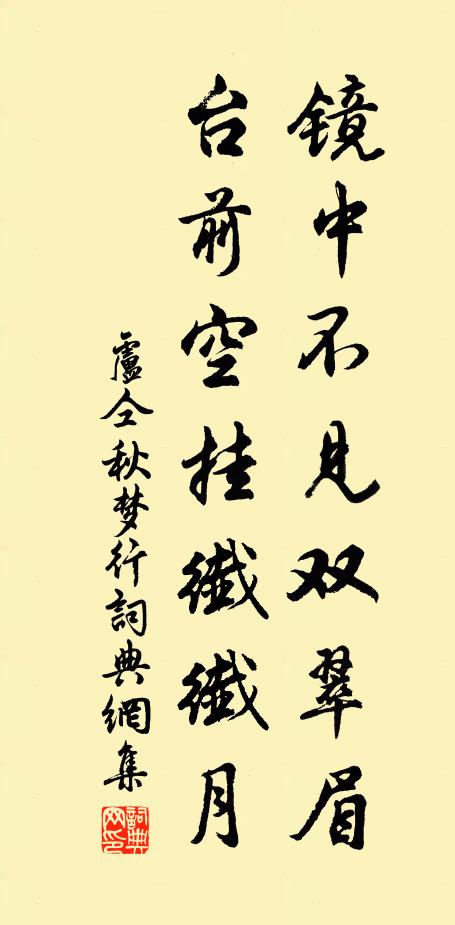 镜中不见双翠眉
台前空挂纤纤月
盧仝秋梦行詞典網集
詞典网印